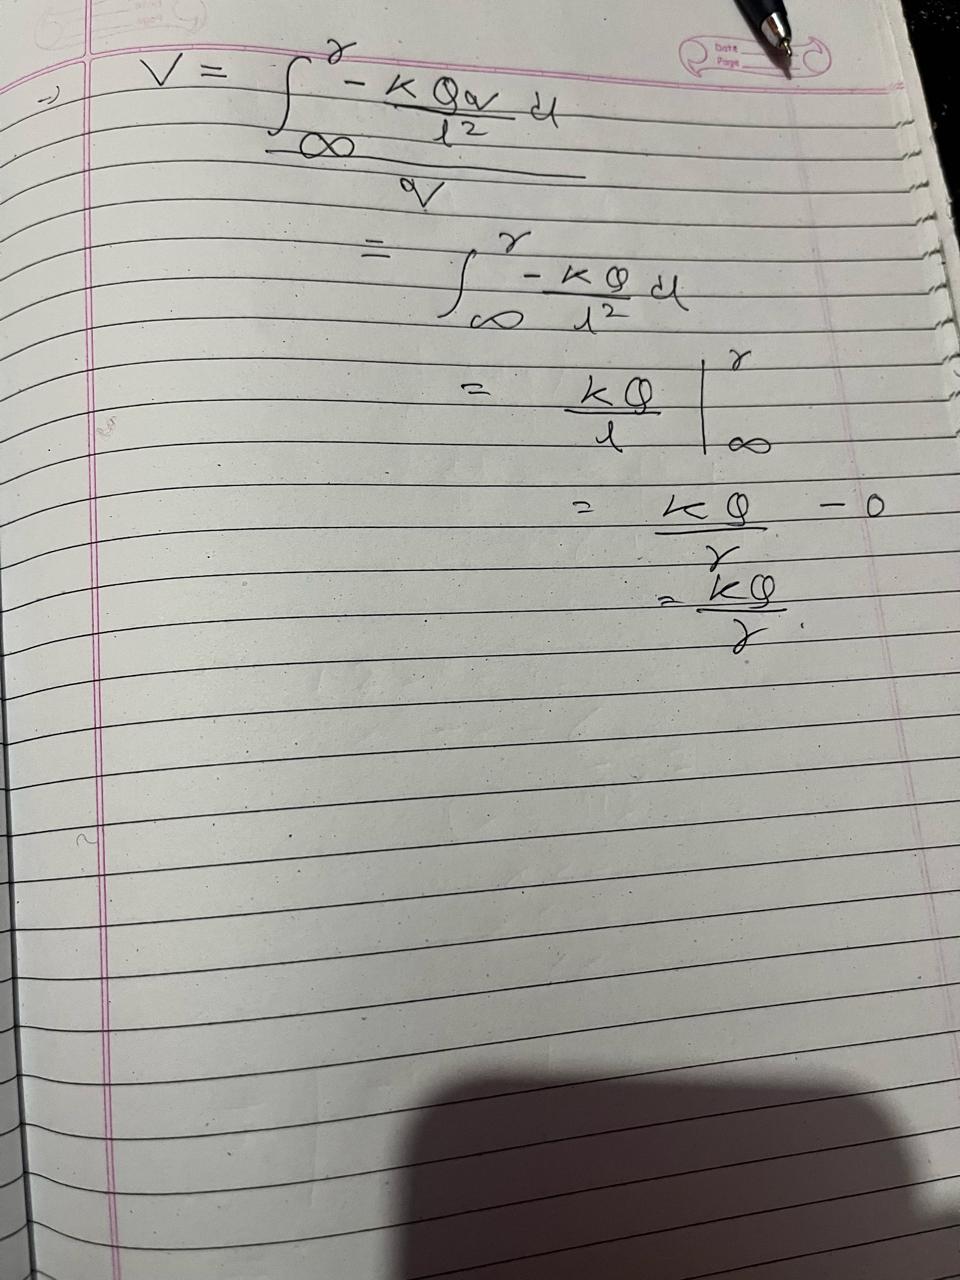 Date
Page
→ V = ∫_∞^r - kQq/l² dl
q
= ∫_∞^r - kQ/l² dl
= kQ/l |_∞^r
= kQ/r - 0
= kQ/r .